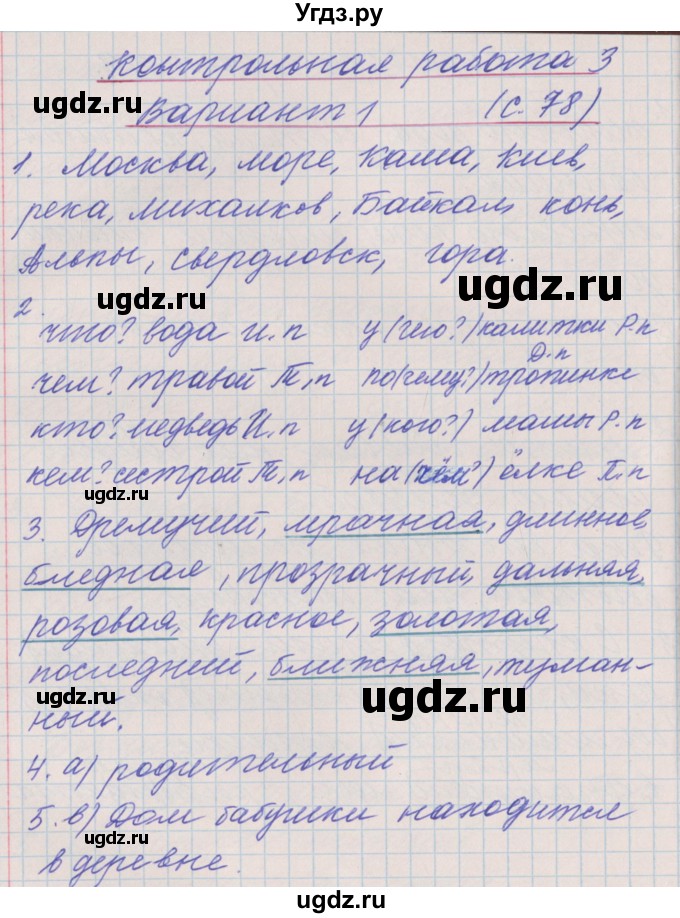 Угдз.ру
Контрольная работа 3
Вариант 1 (с. 78)
1. Москва, море, Кама, Киев,
река, Михалков, Байкал, конь,
Альпы, Свердловск, гора.
2.
что? вода И.п у(чего?) калитки Р.п
чем? травой Т.п по(чему?) тропинке Д.п
кто? медведь И.п у(кого?) мамы Р.п
кем? сестрой Т.п на(чём?) ёлке П.п
3. Дремучий, мрачная, длинное,
бледная, прозрачный, дальняя,
розовая, красное, золотая,
последний, ближняя, туман-
ный.
4. а) родительный
5. в) Дом бабушки находится
в деревне.
ugdz.ru
ugdz.ru
ugdz.ru
ugdz.ru
ugdz.ru
ugdz.ru
ugdz.ru
ugdz.ru
ugdz.ru